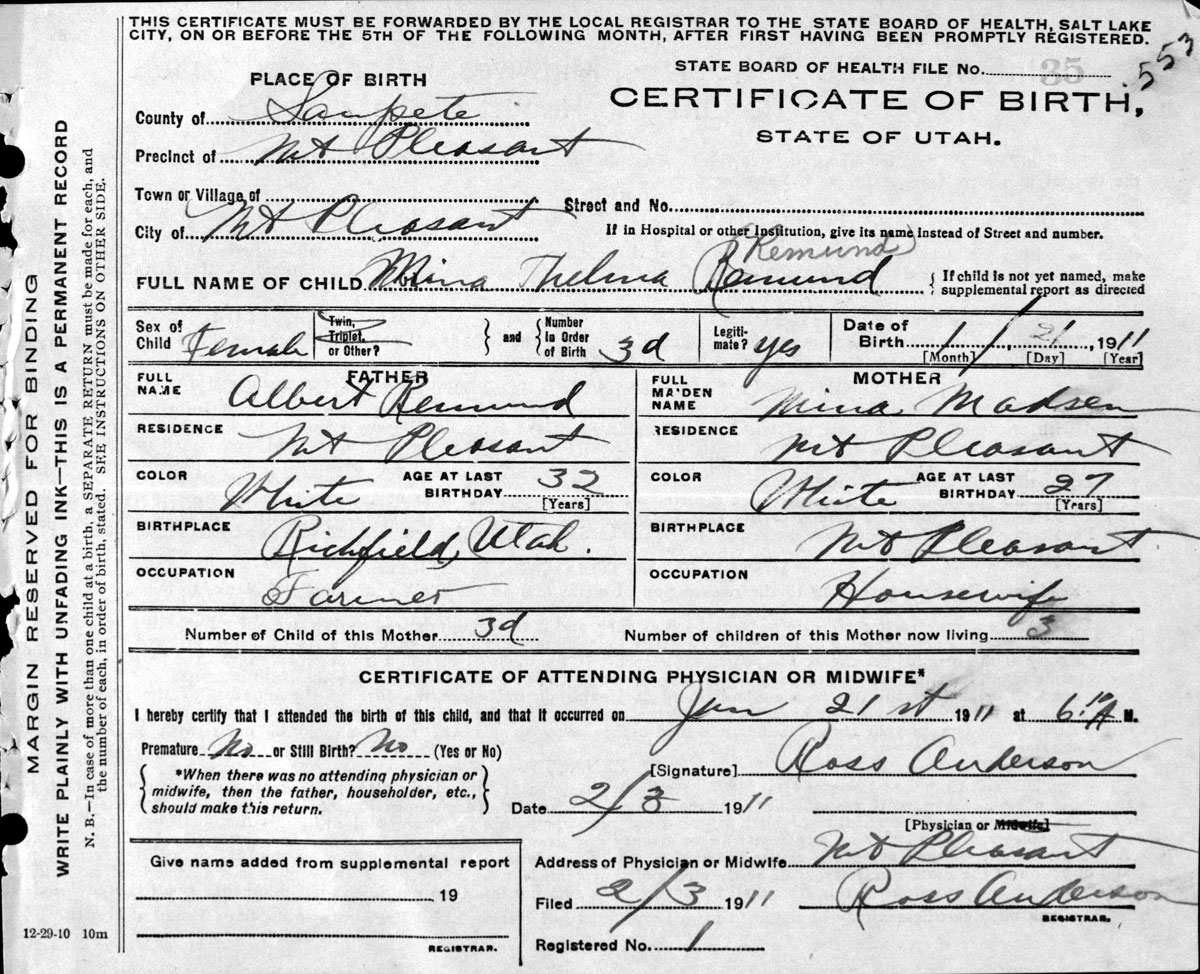 THIS CERTIFICATE MUST BE FORWARDED BY THE LOCAL REGISTRAR TO THE STATE BOARD OF HEALTH, SALT LAKE
CITY, ON OR BEFORE THE 5TH OF THE FOLLOWING MONTH, AFTER FIRST HAVING BEEN PROMPTLY REGISTERED.
STATE BOARD OF HEALTH FILE No. 35 553
PLACE OF BIRTH
CERTIFICATE OF BIRTH,
STATE OF UTAH.
County of Sanpete
Precinct of Mt Pleasant
Town or Village of
Street and No.
City of Mt Pleasant
If in Hospital or other Institution, give its name instead of Street and number.
Remund
FULL NAME OF CHILD Mina Thelma Remund { If child is not yet named, make
supplemental report as directed
Sex of Child Female
Twin, Triplet, or Other?
and { Number In Order of Birth 3d
Legitimate? yes
Date of Birth 1 / 21, 1911
[Month] [Day] [Year]
FATHER
FULL NAME Albert Remund
RESIDENCE Mt Pleasant
COLOR White AGE AT LAST BIRTHDAY 32 [Years]
BIRTHPLACE Richfield, Utah.
OCCUPATION Farmer
MOTHER
FULL MAIDEN NAME Mina Madsen
RESIDENCE Mt Pleasant
COLOR White AGE AT LAST BIRTHDAY 27 [Years]
BIRTHPLACE Mt Pleasant
OCCUPATION Housewife
Number of Child of this Mother 3d Number of children of this Mother now living 3
CERTIFICATE OF ATTENDING PHYSICIAN OR MIDWIFE*
I hereby certify that I attended the birth of this child, and that it occurred on Jan 21st 1911 at 6:10 A M.
Premature No or Still Birth? No (Yes or No)
[Signature] Ross Anderson
{ *When there was no attending physician or
midwife, then the father, householder, etc.,
should make this return. }
Date 2/3 1911
[Physician or Midwife]
Address of Physician or Midwife Mt Pleasant
Filed 2/3 1911 Ross Anderson
REGISTRAR.
Registered No. 1
Give name added from supplemental report
19
REGISTRAR.
12-29-10 10m
MARGIN RESERVED FOR BINDING
WRITE PLAINLY WITH UNFADING INK—THIS IS A PERMANENT RECORD
N. B.—In case of more than one child at a birth, a SEPARATE RETURN must be made for each, and
the number of each, in order of birth, stated. SEE INSTRUCTIONS ON OTHER SIDE.